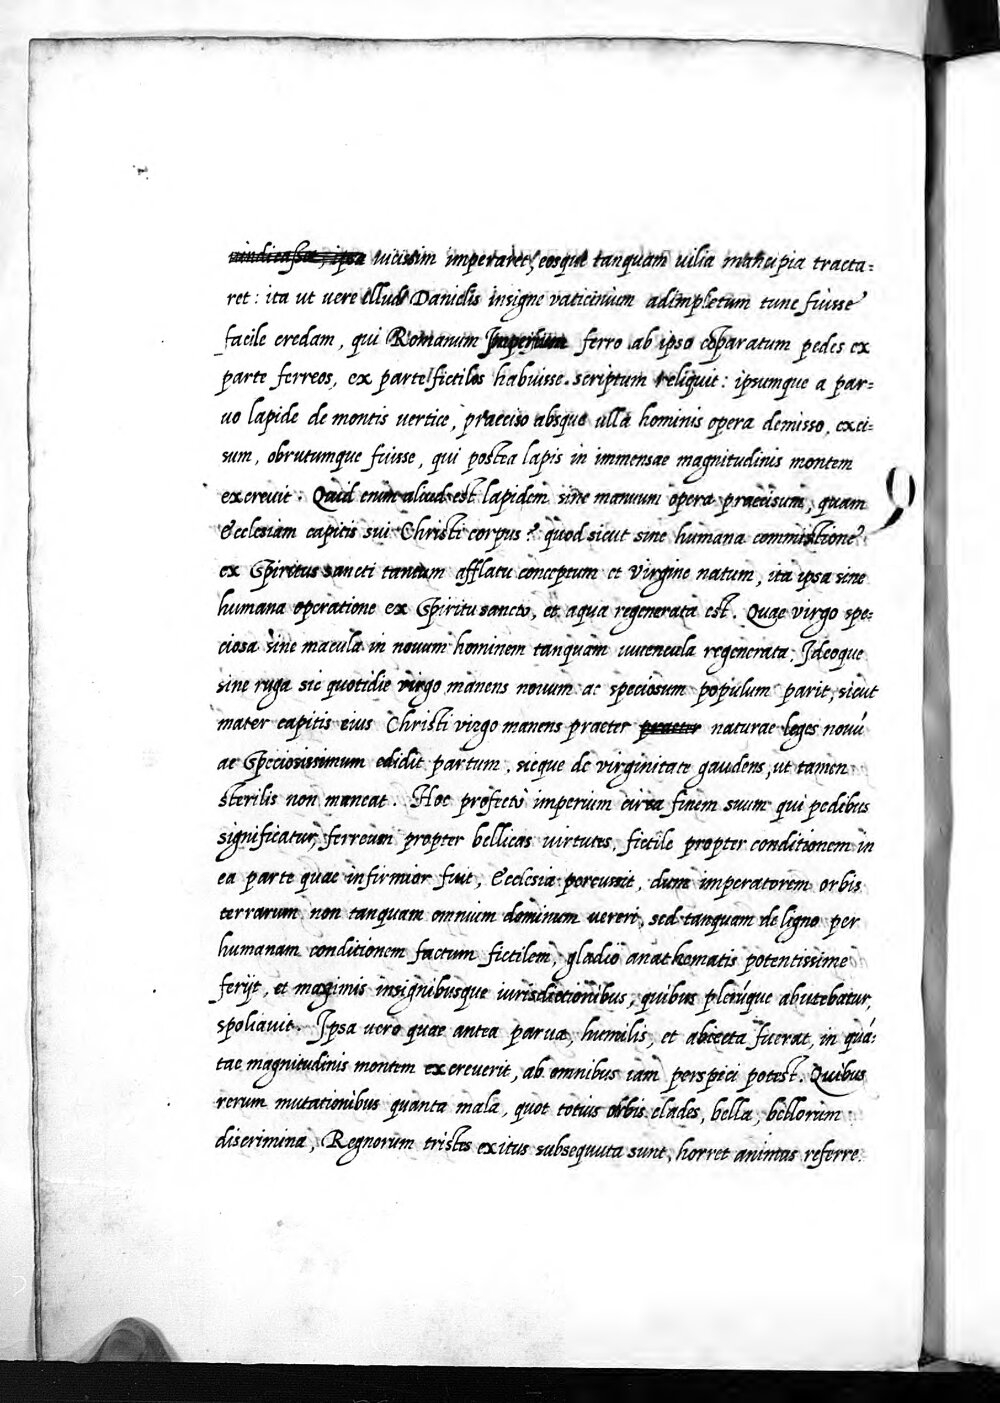 vindicasset, ipsa vicissim imperaret, eosque tanquam vilia mancipia tracta=
ret: ita ut vere illud Danielis insigne vaticinium adimpletum tunc fuisse
facile credam, qui Romanum Imperium ferro ab ipso cõparatum pedes ex
parte ferreos, ex parte fictiles habuisse scriptum reliquit: ipsumque a par=
vo lapide de montis vertice, praeciso absque ulla hominis opera demisso, exci=
sum, obrutumque fuisse, qui postea lapis in immensae magnitudinis montem
excrevit. Quid enim aliud est lapidem sine manuum opera praecisum, quam
Ecclesiam capitis sui Christi corpus? quod sicut sine humana commistione
ex Spiritus sancti tantum afflatu conceptum et Virgine natum, ita ipsa sine
humana operatione ex Spiritu sancto, et aqua regenerata est. Quae virgo spe=
ciosa sine macula in novum hominem tanquam iuvencula regenerata. Ideoque
sine ruga sic quotidie virgo manens novum ac speciosum populum parit, sicut
mater capitis eius Christi virgo manens praeter praeter naturae leges novú
ac Speciosissimum edidit partum, sicque de virginitate gaudens, ut tamen
sterilis non maneat. Hoc profecto imperium circa finem suum qui pedibus
significatur, ferreum propter bellicas virtutes, fictile propter conditionem in
ea parte quae infirmior fuit, Ecclesia percussit, dum imperatorem orbis
terrarum non tanquam omnium dominum vereri, sed tanquam de ligno per
humanam conditionem factum fictilem, gladio anathematis potentissime
ferijt, et maximis insignibusque iurisdictionibus, quibus plerúque abutebatur,
spoliavit. Ipsa vero quae antea parva, humilis, et abiecta fuerat, in quá=
tae magnitudinis montem excreverit, ab omnibus iam perspici potest. Quibus
rerum mutationibus quanta mala, quot totius orbis clades, bella, bellorum
discrimina, Regnorum tristes exitus subsequuta sunt, horret animus referre.